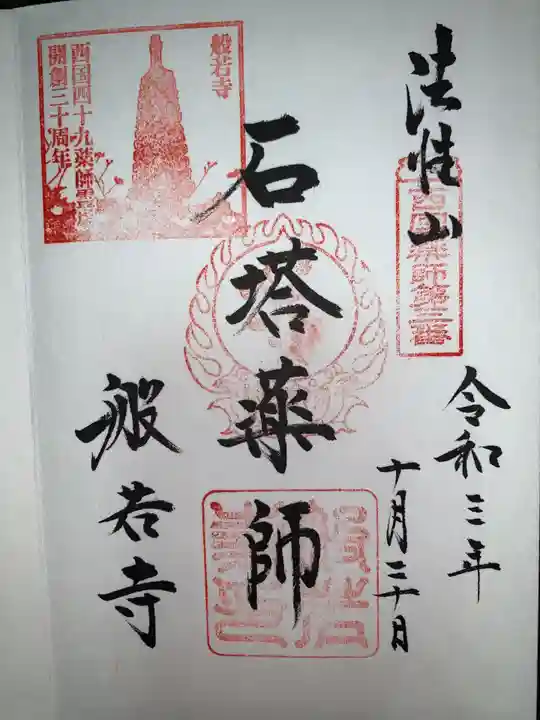 法性山
西国薬師第三番
令和三年
十月三十日
石塔薬師
般若寺
般若寺
西国四十九薬師霊場
開創三十周年